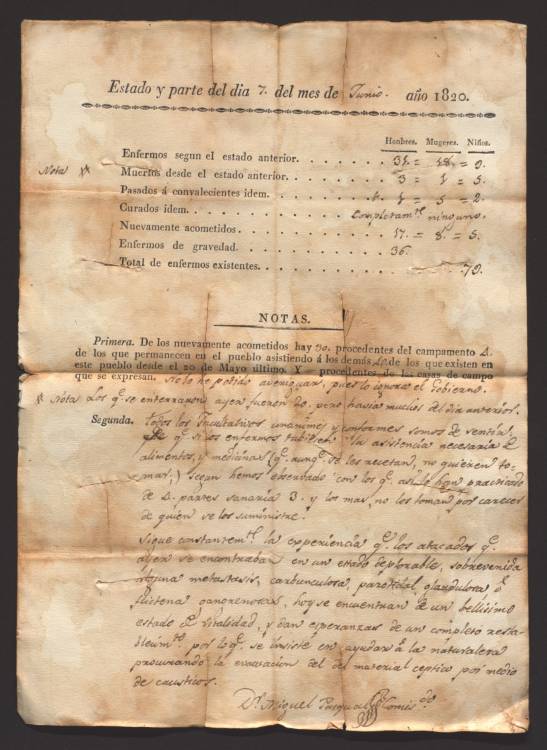 Estado y parte del dia 7. del mes de Junio. año 1820.
Hombres. Mugeres. Niños.
Enfermos segun el estado anterior. 31 = 18 = 9.
Nota Muertos desde el estado anterior. 3 = 1 = 5.
Pasados á convalecientes idem. 1 = 5 = 2.
Curados idem. Completamte ninguno.
Nuevamente acometidos. 17 = 8 = 5.
Enfermos de gravedad. 36.
Total de enfermos existentes. 79.
NOTAS.
Primera. De los nuevamente acometidos hay 30. procedentes del campamento
de los que permanecen en el pueblo asistiendo á los demás de los que existen en
este pueblo desde el 20 de Mayo último. Y procedentes de las casas de campo
que se expresan. No lo he podido averiguar, pues lo ignora el Gobierno.
Nota Los q.e se enterraron ayer fueron 20. pero havia muchos del dia anterior.
Segunda. Todos los Facultativos unanimes y conformes somos de sentir,
q.e si los enfermos tubiesen la asistencia necesaria de
alimentos, y medicinas (q.e aunq.e se les recetan, no quieren to-
mar,) segun hemos observado con los q.e asi lo han practicado
de 4. partes sanaria 3. y los mas, no las toman por carecer
de quien se los suministre.
Sigue constantemte la experiencia q.e los atacados q.e
ayer se encontraban en un estado deplorable, sobrevenida
alguna metastasis, carbunculosa, parotidal, glandulosa ó
flictena gangrenosas, hoy se encuentran de un bellisimo
estado de vitalidad, y dan esperanzas de un completo resta-
blecimto por lo q.e se insiste en ayudar á la naturaleza
procurando la evacuacion del del material ceptico por medio
de causticos.
Dr Miguel Pasqual Comisdo